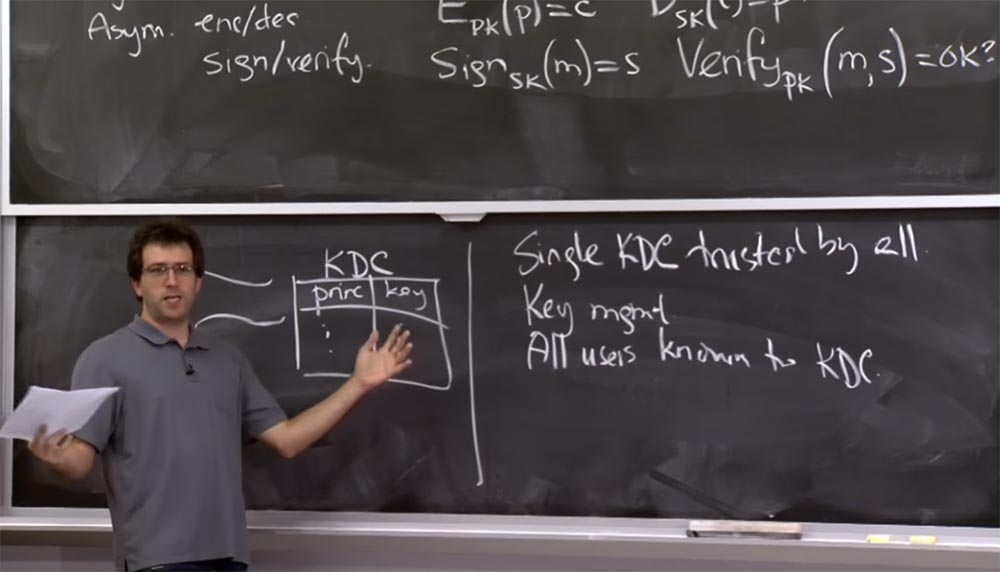 Asym. enc/dec E_PK(p)=c D_SK(c)=p
sign/verify. Sign_SK(m)=s Verify_PK(m,s)=OK?
KDC
princ key
:
Single KDC trusted by all.
Key mgmt.
All users known to KDC.